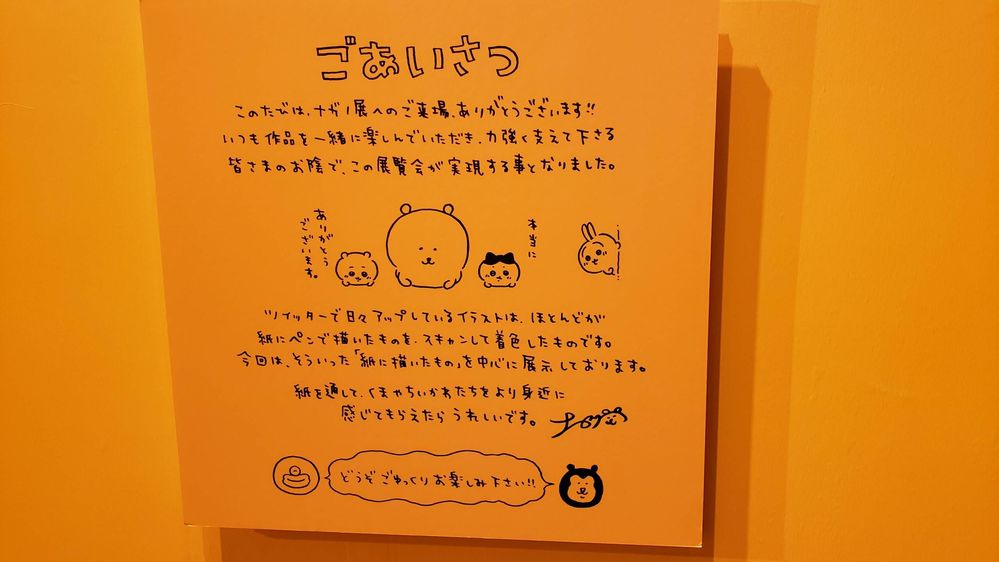 ごあいさつ
このたびは、ナガノ展へのご来場、ありがとうございます!!
いつも作品を一緒に楽しんでいただき、力強く支えて下さる
皆さまのお陰で、この展覧会が実現する事となりました。
本当に
ありがとう
ございます。
ツイッターで日々アップしているイラストは、ほとんどが
紙にペンで描いたものを、スキャンして着色したものです。
今回は、そういった「紙に描いたもの」を中心に展示しております。
紙を通して、くまやちいかわたちをより身近に
感じてもらえたらうれしいです。
どうぞごゆっくりお楽しみ下さい!!